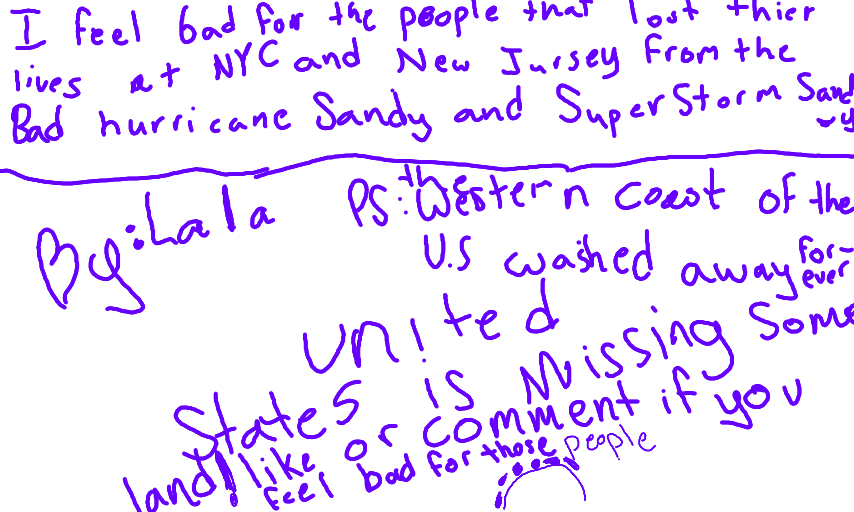 I feel bad for the people that lost thier
lives at NYC and New Jursey from the
Bad hurricane Sandy and SuperStorm Sandy
By: Lala
PS: the Western coast of the
U.S washed away for-
ever
United
States is Missing some
land! like or comment if you
feel bad for those people